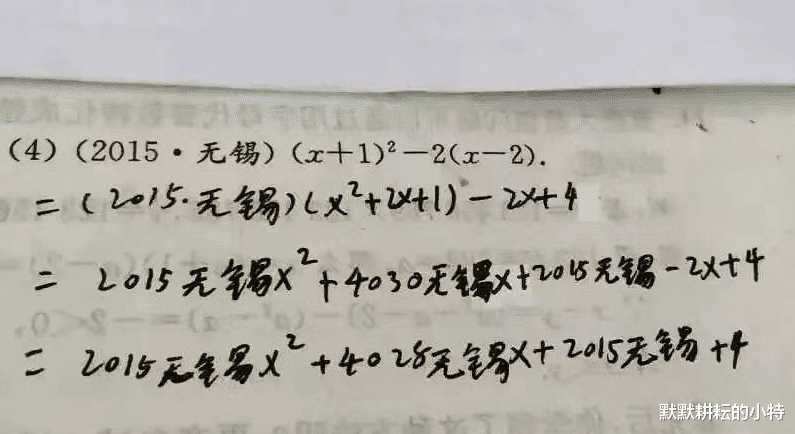 (4)(2015·无锡)(x+1)²-2(x-2).
=(2015·无锡)(x²+2x+1)-2x+4
= 2015无锡x²+4030无锡x+2015无锡-2x+4
= 2015无锡x²+4028无锡x+2015无锡+4
默默耕耘的小特